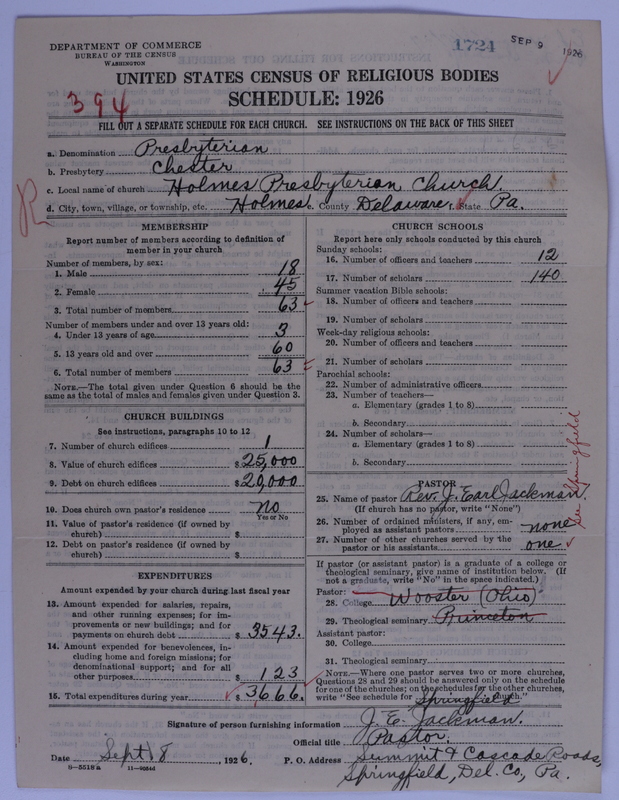 DEPARTMENT OF COMMERCE
BUREAU OF THE CENSUS
WASHINGTON
1724
SEP 9 1926
UNITED STATES CENSUS OF RELIGIOUS BODIES
394
SCHEDULE: 1926
FILL OUT A SEPARATE SCHEDULE FOR EACH CHURCH. SEE INSTRUCTIONS ON THE BACK OF THIS SHEET
a. Denomination Presbyterian
b. Presbytery Chester
c. Local name of church Holmes Presbyterian Church.
d. City, town, village, or township, etc. Holmes e. County Delaware f. State Pa.
MEMBERSHIP
Report number of members according to definition of
member in your church
Number of members, by sex:
1. Male 18
2. Female 45
3. Total number of members 63
Number of members under and over 13 years old:
4. Under 13 years of age 3
5. 13 years old and over 60
6. Total number of members 63
NOTE.—The total given under Question 6 should be the
same as the total of males and females given under Question 3.
CHURCH BUILDINGS
See instructions, paragraphs 10 to 12
7. Number of church edifices 1
8. Value of church edifices $25,000
9. Debt on church edifices $20,000
10. Does church own pastor's residence no
Yes or No
11. Value of pastor's residence (if owned by
church) $
12. Debt on pastor's residence (if owned by
church) $
EXPENDITURES
Amount expended by your church during last fiscal year
13. Amount expended for salaries, repairs,
and other running expenses; for im-
provements or new buildings; and for
payments on church debt $3543.
14. Amount expended for benevolences, in-
cluding home and foreign missions; for
denominational support; and for all
other purposes $123
15. Total expenditures during year $3666.
CHURCH SCHOOLS
Report here only schools conducted by this church
Sunday schools:
16. Number of officers and teachers 12
17. Number of scholars 140
Summer vacation Bible schools:
18. Number of officers and teachers
19. Number of scholars
Week-day religious schools:
20. Number of officers and teachers
21. Number of scholars
Parochial schools:
22. Number of administrative officers
23. Number of teachers—
a. Elementary (grades 1 to 8)
b. Secondary
24. Number of scholars—
a. Elementary (grades 1 to 8)
b. Secondary
PASTOR
25. Name of pastor Rev. J. Earl Jackman
(If church has no pastor, write "None")
26. Number of ordained ministers, if any, em-
ployed as assistant pastors none
27. Number of other churches served by the
pastor or his assistants one
See Springfield
If pastor (or assistant pastor) is a graduate of a college or
theological seminary, give name of institution below. (If
not a graduate, write "No" in the space indicated.)
Pastor:
28. College Wooster (Ohio)
29. Theological seminary Princeton
Assistant pastor:
30. College
31. Theological seminary
NOTE.—Where one pastor serves two or more churches,
Questions 28 and 29 should be answered only on the schedule
for one of the churches; on the schedules for the other churches,
write "See schedule for Springfield Church."
Signature of person furnishing information J. E. Jackman.
Official title Pastor.
Date Sept 8, 1926. P. O. Address Summit & Cascade Roads,
Springfield, Del. Co., Pa.
8—5518a 11—9054d